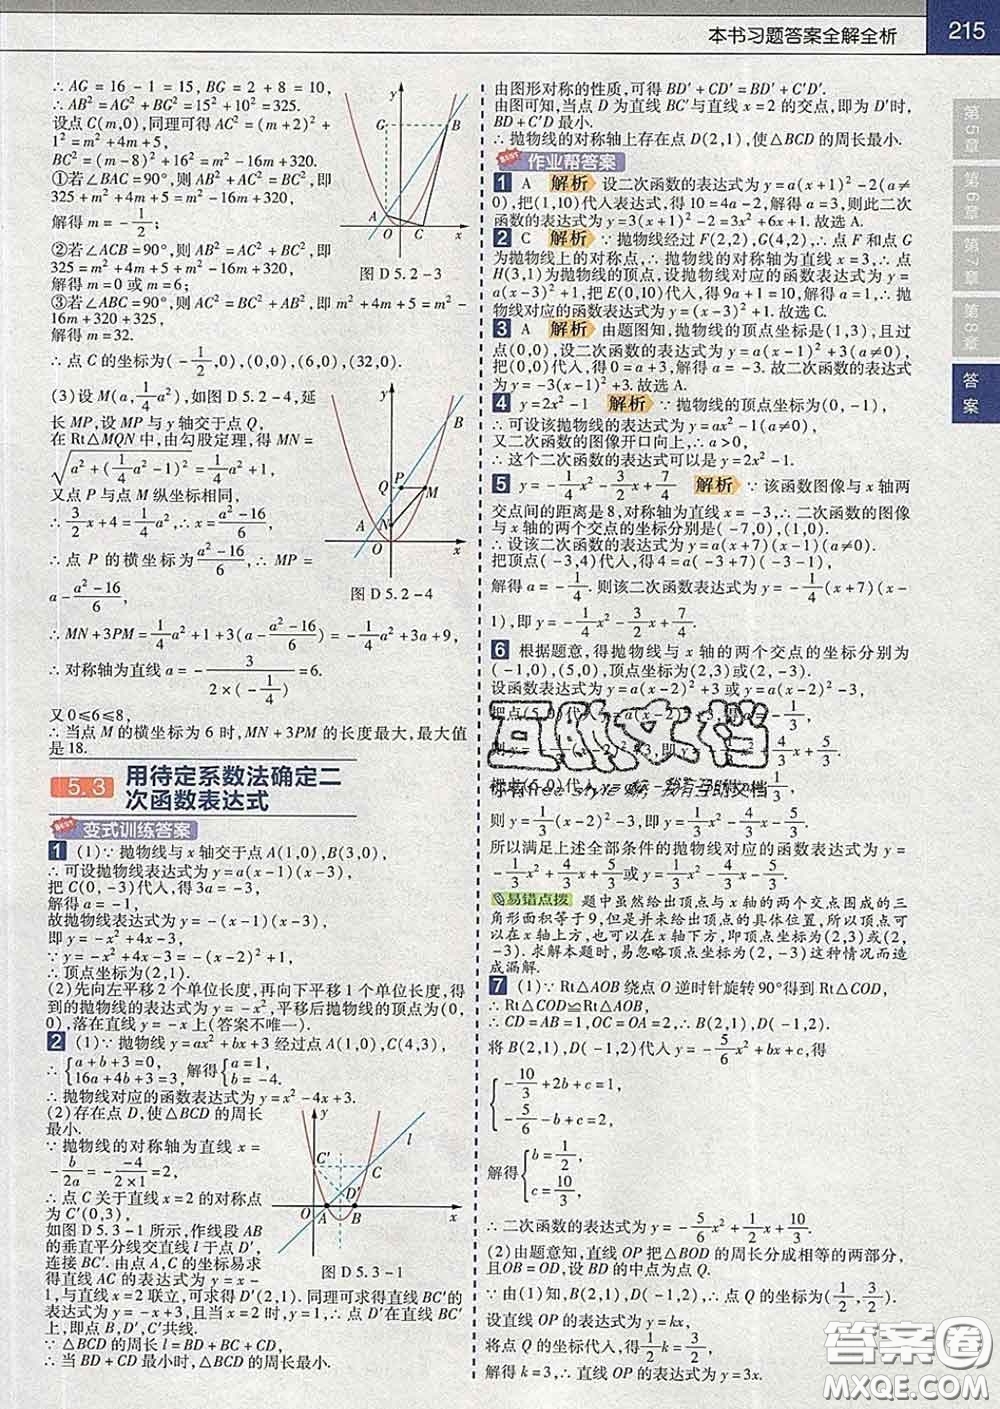 本书习题答案全解全析
215
∴ AG = 16 − 1 = 15, BG = 2 + 8 = 10,
∴ AB² = AG² + BG² = 15² + 10² = 325.
设点 C(m,0),同理可得 AC² = (m + 2)² +
1² = m² + 4m + 5,
BC² = (m − 8)² + 16² = m² − 16m + 320.
①若∠BAC = 90°,则 AB² + AC² = BC²,即
325 + m² + 4m + 5 = m² − 16m + 320,
解得 m = −1/2;
②若∠ACB = 90°,则 AB² = AC² + BC²,即
325 = m² + 4m + 5 + m² − 16m + 320,
解得 m = 0 或 m = 6;
③若∠ABC = 90°,则 AC² = BC² + AB²,即 m² + 4m + 5 = m² −
16m + 320 + 325,
解得 m = 32.
∴ 点 C 的坐标为(−1/2,0),(0,0),(6,0),(32,0).
G B A O C x
图 D 5. 2 − 3
(3)设 M(a,1/4a²),如图 D 5. 2 − 4,延
长 MP,设 MP 与 y 轴交于点 Q.
在 Rt△MQN 中,由勾股定理,得 MN =
√(a² + (1/4a² − 1)²) = 1/4a² + 1,
又点 P 与点 M 纵坐标相同,
∴ 3/2x + 4 = 1/4a²,∴ x = (a² − 16)/6,
∴ 点 P 的横坐标为(a² − 16)/6,∴ MP =
a − (a² − 16)/6,
B P Q M A N O x
图 D 5. 2 − 4
∴ MN + 3PM = 1/4a² + 1 + 3(a − (a² − 16)/6) = −1/4a² + 3a + 9,
∴ 对称轴为直线 a = −3/(2 × (−1/4)) = 6.
又 0≤6≤8,
∴ 当点 M 的横坐标为 6 时,MN + 3PM 的长度最大,最大值
是 18.
5. 3 用待定系数法确定二
次函数表达式
变式训练答案
1 (1)∵ 抛物线与 x 轴交于点 A(1,0),B(3,0),
∴ 可设抛物线表达式为 y = a(x − 1)(x − 3),
把 C(0, − 3)代入,得 3a = − 3,
解得 a = − 1,
故抛物线表达式为 y = − (x − 1)(x − 3),
即 y = − x² + 4x − 3,
∵ y = − x² + 4x − 3 = − (x − 2)² + 1,
∴ 顶点坐标为(2,1).
(2)先向左平移 2 个单位长度,再向下平移 1 个单位长度,得
到的抛物线的表达式为 y = − x²,平移后抛物线的顶点为(0,
0),落在直线 y = − x 上(答案不唯一).
2 (1)∵ 抛物线 y = ax² + bx + 3 经过点 A(1,0),C(4,3),
∴ {a + b + 3 = 0, 16a + 4b + 3 = 3, 解得{a = 1, b = − 4.
∴ 抛物线对应的函数表达式为 y = x² − 4x + 3.
(2)存在点 D,使△BCD 的周长
最小.
∵ 抛物线的对称轴为直线 x =
−b/2a = −(−4)/(2 × 1) = 2,
∴ 点 C 关于直线 x = 2 的对称点
为 C′(0,3),
如图 D 5. 3 − 1 所示,作线段 AB
的垂直平分线交直线 l 于点 D′,
连接 BC′. 由点 A,C 的坐标易求
得直线 AC 的表达式为 y = x −
1,与直线 x = 2 联立,可求得 D′(2,1). 同理可求得直线 BC′的
表达式为 y = − x + 3,且当 x = 2 时,y = 1,∴ D′在直线 BC′
上,即点 B,D′,C′共线.
∵ △BCD 的周长 l = BD + BC + CD,
∴ 当 BD + CD 最小时,△BCD 的周长最小.
C′ C l D′ O A B x
图 D 5. 3 − 1
由图形对称的性质,可得 BD′ + CD′ = BD′ + C′D′.
由图可知,当点 D 为直线 BC′与直线 x = 2 的交点,即为 D′时,
BD + C′D 最小.
∴ 抛物线的对称轴上存在点 D(2,1),使△BCD 的周长最小.
作业帮答案
1 A 解析 设二次函数的表达式为 y = a(x + 1)² − 2(a≠
0),把(1,10)代入表达式,得 10 = 4a − 2,解得 a = 3,则此二次
函数的表达式为 y = 3(x + 1)² − 2 = 3x² + 6x + 1. 故选 A.
2 C 解析 ∵ 抛物线经过 F(2,2),G(4,2),∴ 点 F 和点 G
为抛物线上的对称点,∴ 抛物线的对称轴为直线 x = 3,∴ 点
H(3,1)为抛物线的顶点,设抛物线对应的函数表达式为 y =
a(x − 3)² + 1,把 E(0,10)代入,得 9a + 1 = 10,解得 a = 1,∴ 抛
物线对应的函数表达式为 y = (x − 3)² + 1. 故选 C.
3 A 解析 由题图知,抛物线的顶点坐标是(1,3),且过
点(0,0),设二次函数的表达式为 y = a(x − 1)² + 3(a≠0),
把(0,0)代入,得 0 = a + 3,解得 a = − 3. 故二次函数的表达式
为 y = −3(x − 1)² + 3. 故选 A.
4 y = 2x² − 1 解析 ∵ 抛物线的顶点坐标为(0, − 1),
∴ 可设该抛物线的表达式为 y = ax² − 1(a≠0),
又二次函数的图像开口向上,∴ a > 0,
∴ 这个二次函数的表达式可以是 y = 2x² − 1.
5 y = −1/4x² − 3/2x + 7/4 解析 ∵ 该函数图像与 x 轴两
交点间的距离是 8,对称轴为直线 x = −3,∴ 二次函数的图像
与 x 轴的两个交点的坐标分别是( − 7,0),(1,0).
∴ 设该二次函数的表达式为 y = a(x + 7)(x − 1)(a≠0).
把点( − 3,4)代入,得 4 = a( − 3 + 7)( − 3 − 1),
解得 a = −1/4. 则该二次函数的表达式为 y = −1/4(x + 7)(x −
1),即 y = −1/4x² − 3/2x + 7/4.
6 根据题意,得抛物线与 x 轴的两个交点的坐标分别为
( − 1,0),(5,0),顶点坐标为(2,3)或(2, − 3).
设函数表达式为 y = a(x − 2)² + 3 或 y = a(x − 2)² − 3,
则 y = 1/3(x − 2)² − 3,即 y = 1/3x² − 4/3x − 5/3.
所以满足上述全部条件的抛物线对应的函数表达式为 y =
−1/3x² + 4/3x + 5/3 或 y = 1/3x² − 4/3x − 5/3.
易错点拨 题中虽然给出顶点与 x 轴的两个交点围成的三
角形面积等于 9,但是并未给出顶点的具体位置,所以顶点可
以在 x 轴上方,也可以在 x 轴下方,即顶点坐标为(2,3)或(2,
− 3). 求解本题时,易忽略顶点坐标为(2, − 3)这种情况而造
成漏解.
7 (1)∵ Rt△AOB 绕点 O 逆时针旋转 90°得到 Rt△COD,
∴ Rt△COD≌Rt△AOB,
∴ CD = AB = 1,OC = OA = 2,∴ B(2,1),D( − 1,2).
将 B(2,1),D( − 1,2)代入 y = −5/6x² + bx + c,得
{−10/3 + 2b + c = 1,
−5/6 − b + c = 2,
解得{b = 1/2,
c = 10/3,
∴ 二次函数的表达式为 y = −5/6x² + 1/2x + 10/3.
(2)由题意知,直线 OP 把△BOD 的周长分成相等的两部分,
且 OB = OD,设 BD 的中点为点 Q.
∵ 由(1)知,B(2,1),D( − 1,2),∴ 点 Q 的坐标为(1/2,3/2),
设直线 OP 的表达式为 y = kx,
将点 Q 的坐标代入,得1/2k = 3/2,
解得 k = 3,∴ 直线 OP 的表达式为 y = 3x.
第5章
第6章
第7章
第8章
答案
答案圈
MXQE.COM